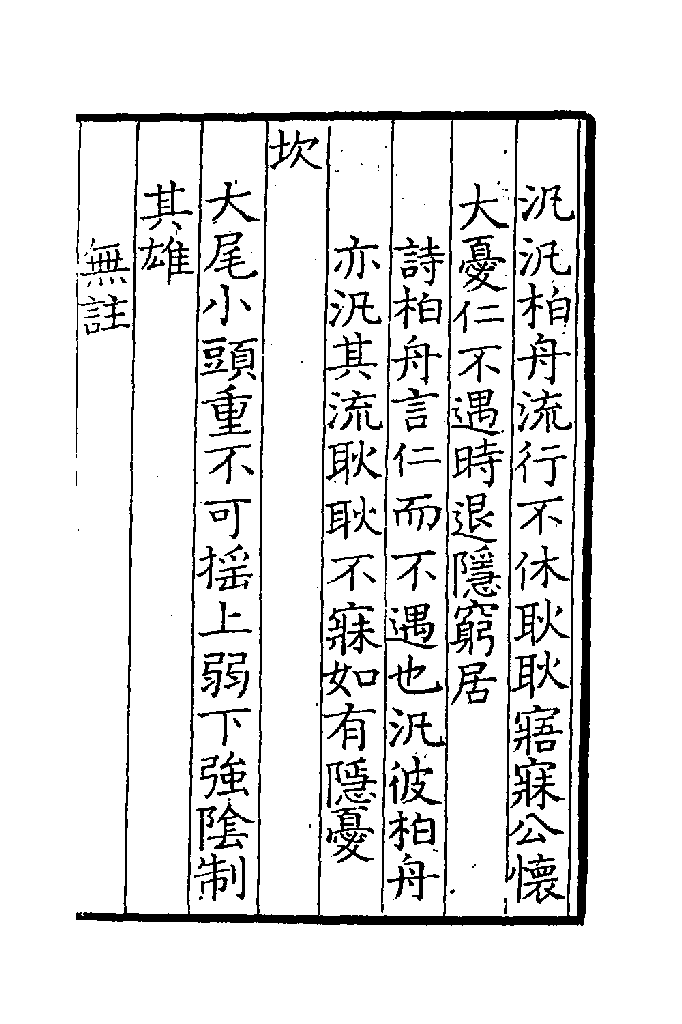 汎汎柏舟流行不休耿耿寤寐公懷
大憂仁不遇時退隱窮居
詩柏舟言仁而不遇也汎彼柏舟
亦汎其流耿耿不寐如有隱憂
坎
大尾小頭重不可揺上弱下強陰制
其雄
無註